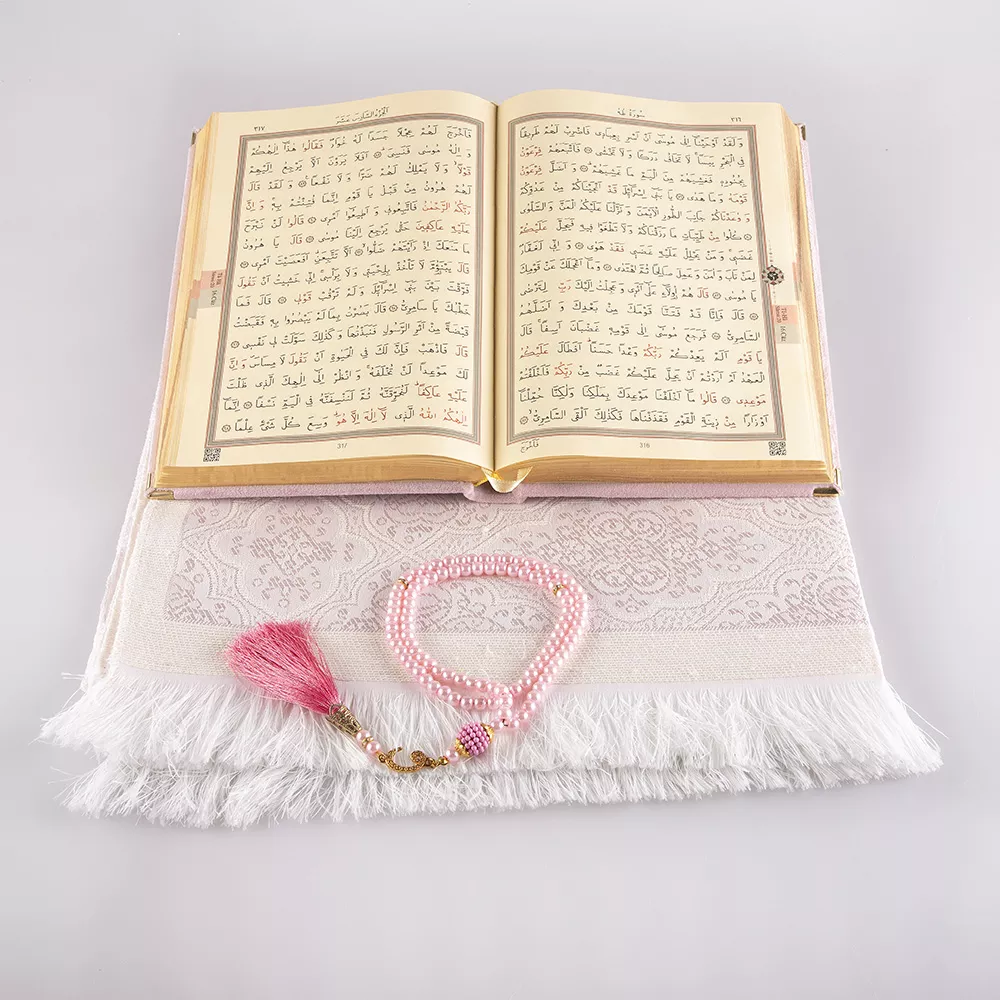 سُورَةُ طٰهٰ
٣١٦
وَلَقَدْ اَوْحَيْنَٓا اِلٰى مُوسٰٓى اَنْ اَسْرِ بِعِبَاد۪ي فَاضْرِبْ لَهُمْ طَر۪يقًا
فِي الْبَحْرِ يَبَسًاۙ لَا تَخَافُ دَرَكًا وَلَا تَخْشٰى ۞ فَاَتْبَعَهُمْ فِرْعَوْنُ
بِجُنُودِه۪ فَغَشِيَهُمْ مِنَ الْيَمِّ مَا غَشِيَهُمْۜ ۞ وَاَضَلَّ فِرْعَوْنُ
قَوْمَهُ وَمَا هَدٰى ۞ يَا بَن۪ٓي اِسْرَٓائ۪لَ قَدْ اَنْجَيْنَاكُمْ مِنْ عَدُوِّكُمْ
وَوٰعَدْنَاكُمْ جَانِبَ الطُّورِ الْاَيْمَنَ وَنَزَّلْنَا عَلَيْكُمُ الْمَنَّ وَالسَّلْوٰى
۞ كُلُوا مِنْ طَيِّبَاتِ مَا رَزَقْنَاكُمْ وَلَا تَطْغَوْا ف۪يهِ فَيَحِلَّ عَلَيْكُمْ
غَضَب۪يۚ وَمَنْ يَحْلِلْ عَلَيْهِ غَضَب۪ي فَقَدْ هَوٰى ۞ وَاِنّ۪ي لَغَفَّارٌ
لِمَنْ تَابَ وَاٰمَنَ وَعَمِلَ صَالِحًا ثُمَّ اهْتَدٰى ۞ وَمَٓا اَعْجَلَكَ عَنْ قَوْمِكَ
يَا مُوسٰى ۞ قَالَ هُمْ اُو۬لَٓاءِ عَلٰٓى اَثَر۪ي وَعَجِلْتُ اِلَيْكَ رَبِّ لِتَرْضٰى
۞ قَالَ فَاِنَّا قَدْ فَتَنَّا قَوْمَكَ مِنْ بَعْدِكَ وَاَضَلَّهُمُ
السَّامِرِيُّ ۞ فَرَجَعَ مُوسٰٓى اِلٰى قَوْمِه۪ غَضْبَانَ اَسِفًاۚ قَالَ
يَا قَوْمِ اَلَمْ يَعِدْكُمْ رَبُّكُمْ وَعْدًا حَسَنًاۜ اَفَطَالَ عَلَيْكُمُ
الْعَهْدُ اَمْ اَرَدْتُمْ اَنْ يَحِلَّ عَلَيْكُمْ غَضَبٌ مِنْ رَبِّكُمْ فَاَخْلَفْتُمْ
مَوْعِد۪ي ۞ قَالُوا مَٓا اَخْلَفْنَا مَوْعِدَكَ بِمَلْكِنَا وَلٰكِنَّا حُمِّلْنَٓا
اَوْزَارًا مِنْ ز۪ينَةِ الْقَوْمِ فَقَذَفْنَاهَا فَكَذٰلِكَ اَلْقَى السَّامِرِيُّۙ ۞
316
فَاَخْرَجَ
اَلْجُزْءُ السَّادِسَ عَشَرَ
٣١٧
فَاَخْرَجَ لَهُمْ عِجْلًا جَسَدًا لَهُ خُوَارٌ فَقَالُوا هٰذَٓا اِلٰهُكُمْ
وَاِلٰهُ مُوسٰى فَنَسِيَۜ ۞ اَفَلَا يَرَوْنَ اَلَّا يَرْجِعُ اِلَيْهِمْ
قَوْلًاۙ وَلَا يَمْلِكُ لَهُمْ ضَرًّا وَلَا نَفْعًا۟ ۞ وَلَقَدْ قَالَ
لَهُمْ هٰرُونُ مِنْ قَبْلُ يَا قَوْمِ اِنَّمَا فُتِنْتُمْ بِه۪ۚ وَاِنَّ
رَبَّكُمُ الرَّحْمٰنُ فَاتَّبِعُون۪ي وَاَط۪يعُٓوا اَمْر۪ي ۞ قَالُوا لَنْ نَبْرَحَ
عَلَيْهِ عَاكِف۪ينَ حَتّٰى يَرْجِعَ اِلَيْنَا مُوسٰى ۞ قَالَ يَا هٰرُونُ
مَا مَنَعَكَ اِذْ رَاَيْتَهُمْ ضَلُّواۙ ۞ اَلَّا تَتَّبِعَنِۜ اَفَعَصَيْتَ اَمْر۪ي ۞
قَالَ يَبْنَؤُ۬مَّ لَا تَأْخُذْ بِلِحْيَت۪ي وَلَا بِرَأْس۪يۚ اِنّ۪ي خَش۪يتُ اَنْ تَقُولَ
فَرَّقْتَ بَيْنَ بَن۪ٓي اِسْرَٓائ۪لَ وَلَمْ تَرْقُبْ قَوْل۪ي ۞ قَالَ فَمَا
خَطْبُكَ يَا سَامِرِيُّ ۞ قَالَ بَصُرْتُ بِمَا لَمْ يَبْصُرُوا بِه۪ فَقَبَضْتُ
قَبْضَةً مِنْ اَثَرِ الرَّسُولِ فَنَبَذْتُهَا وَكَذٰلِكَ سَوَّلَتْ ل۪ي نَفْس۪ي ۞
قَالَ فَاذْهَبْ فَاِنَّ لَكَ فِي الْحَيٰوةِ اَنْ تَقُولَ لَا مِسَاسَۖ وَاِنَّ
لَكَ مَوْعِدًا لَنْ تُخْلَفَهُۚ وَانْظُرْ اِلٰٓى اِلٰهِكَ الَّذ۪ي ظَلْتَ
عَلَيْهِ عَاكِفًاۜ لَنُحَرِّقَنَّهُ ثُمَّ لَنَنْسِفَنَّهُ فِي الْيَمِّ نَسْفًا ۞ اِنَّمَٓا
اِلٰهُكُمُ اللّٰهُ الَّذ۪ي لَٓا اِلٰهَ اِلَّا هُوَۜ وَسِعَ كُلَّ شَيْءٍ عِلْمًا ۞
317